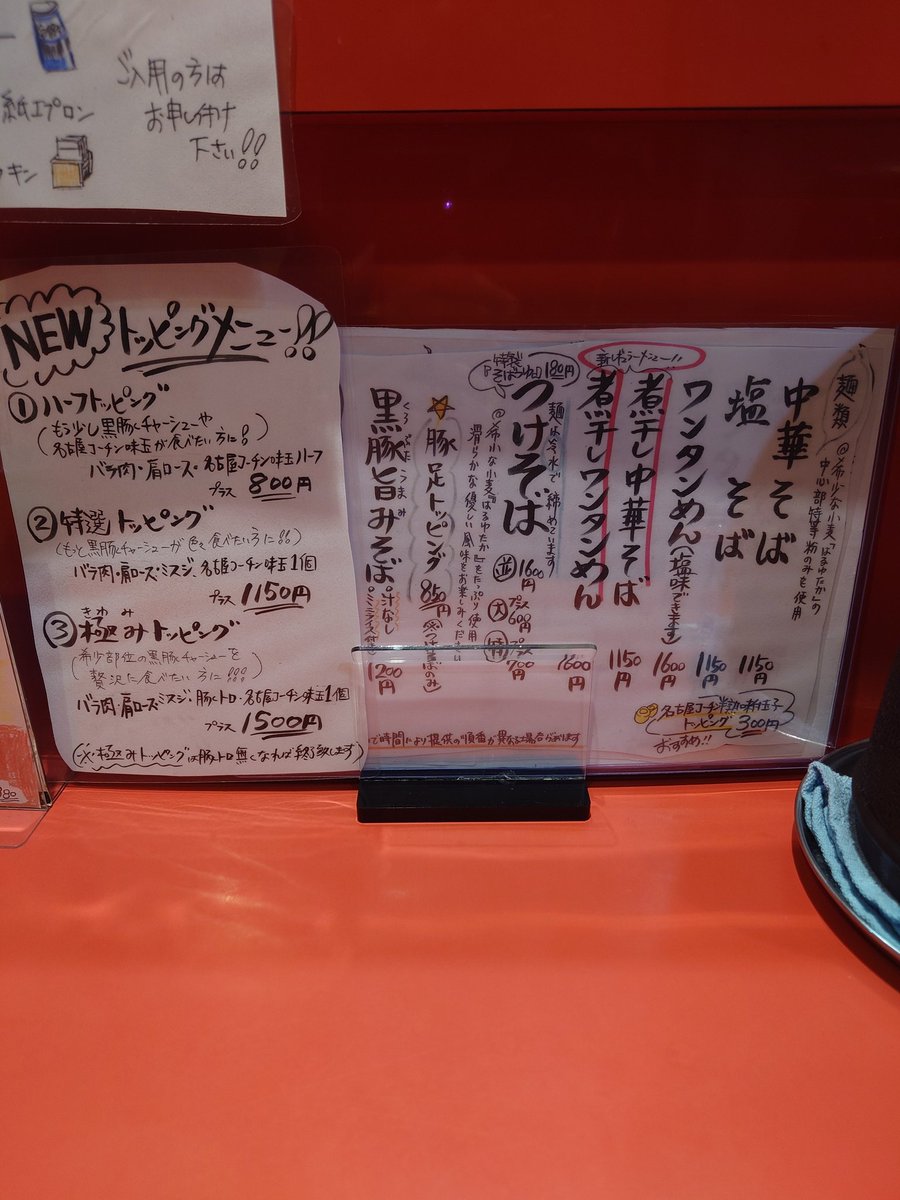 紙エプロン
キン
ご入用の方は
お申し付け
下さい!!
NEW トッピングメニュー!!
① ハーフトッピング
(もう少し黒豚チャーシューや
名古屋コーチン味玉が食べたい方に!)
バラ肉・肩ロース・名古屋コーチン味玉ハーフ
プラス 800円
② 特選トッピング
(もっと黒豚チャーシューが色々食べたい方に!!)
バラ肉・肩ロース・ミスジ・名古屋コーチン味玉1個
プラス 1150円
③ 極みトッピング
きわ み
(希少部位の黒豚チャーシューを
贅沢に食べたい方に!!!)
バラ肉・肩ロース・ミスジ・豚トロ・名古屋コーチン味玉1個
プラス 1500円
(※極みトッピングは豚トロ無くなれば終了致します)
麺類
@希少な小麦「はるゆたか」の
中心部特等粉のみを使用
中華そば 1150円
塩そば 1150円
ワンタンめん(塩味できます) 1600円
新レギュラーメニュー!!
煮干し中華そば 1150円
煮干しワンタンめん 1600円
麺は冷水で締めています
つけそば
並 1600円
大 プラス600円
特 プラス700円
特製「そばつゆ」180円
@希少な小麦「はるゆたか」をたっぷり使用
滑らかな優しい風味をお楽しみください
☆豚足トッピング 850円(※つけそばのみ)
黒豚旨みそぼ
くろぶたうまみ
汁なし
(ミニライス付き)
1200円
名古屋コーチン味付玉子
トッピング 300円
おすすめ!!
で時間により提供の順番が異なる場合があります
380